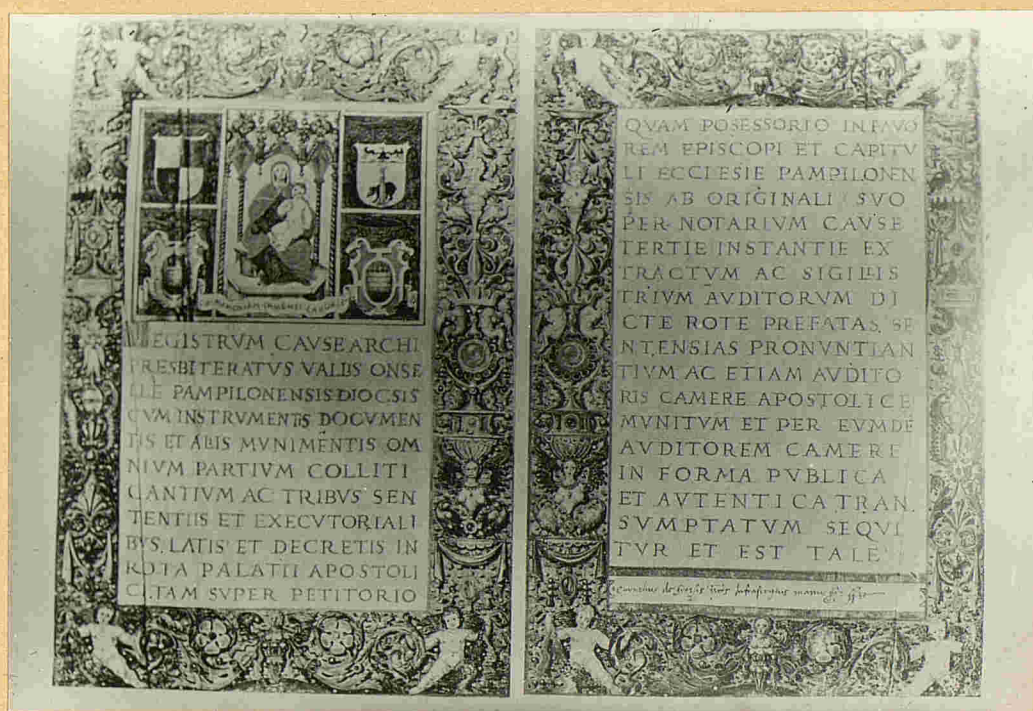 REGISTRVM CAVSE ARCHI
PRESBITERATVS VALLIS ONSE
LLE PAMPILONENSIS DIOCSIS
CVM INSTRVMENTIS DOCVMEN
TIS ET ALIIS MVNIMENTIS OM
NIVM PARTIVM COLLITI
GANTIVM AC TRIBVS SEN
TENTIIS ET EXECVTORIALI
BVS, LATIS ET DECRETIS IN
ROTA PALATII APOSTOLI
CI, TAM SVPER PETITORIO
QVAM POSESSORIO IN FAVO
REM EPISCOPI ET CAPITV
LI ECCLESIE PAMPILONEN
SIS AB ORIGINALI SVO
PER NOTARIVM CAVSE
TERTIE INSTANTIE EX
TRACTVM AC SIGILLIS
TRIVM AVDITORVM DI
CTE ROTE PREFATAS, SE
NTENSIAS PRONVNTIAN
TIVM AC ETIAM AVDITO
RIS CAMERE APOSTOLICE
MVNITVM ET PER EVMDE
AVDITOREM CAMERE
IN FORMA PVBLICA
ET AVTENTICA TRAN
SVMPTATVM SEQVI
TVR ET EST TALE